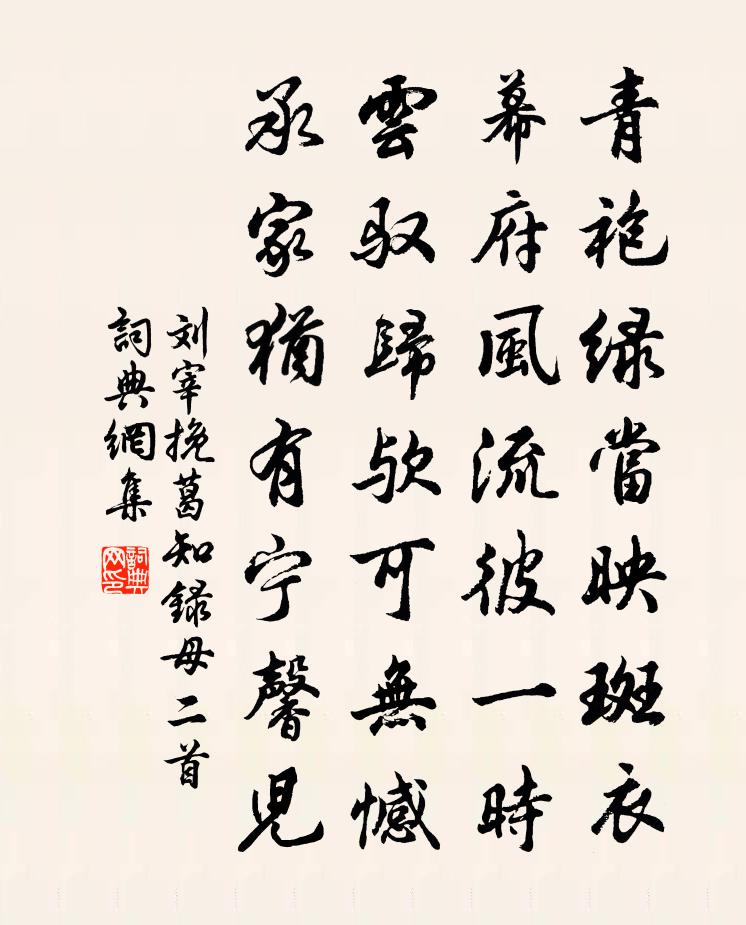 青袍绿當映斑衣
幕府風流彼一時
雲驭歸欤可無憾
承家猶有宁馨児
刘宰挽葛知録母二首
詞典網集
詞典网印